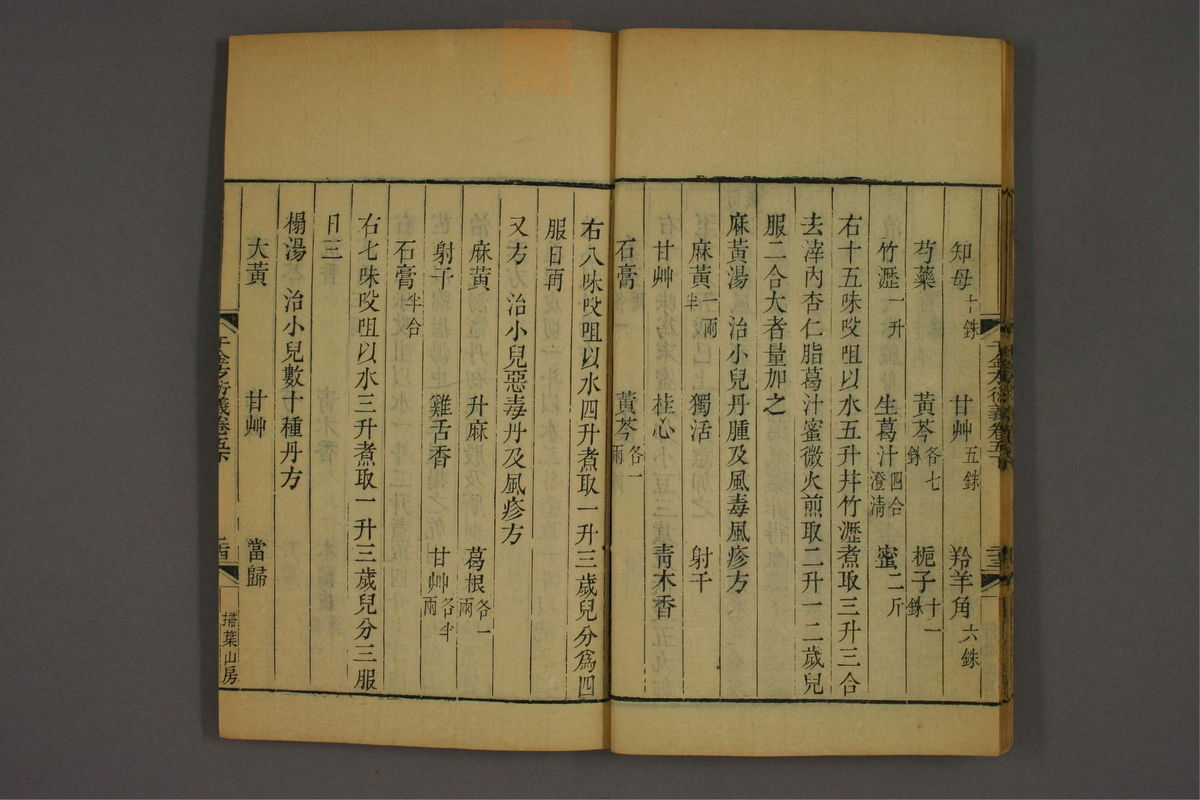 知母十銖　甘艸五銖　羚羊角六銖
芍藥　黃芩各七銖　梔子十一銖
竹瀝一升　生葛汁四合澄淸　蜜二斤
右十五味㕮咀以水五升幷竹瀝煮取三升三合
去滓內杏仁脂葛汁蜜微火煎取二升一二歲兒
服二合大者量加之
麻黃湯　治小兒丹腫及風毒風疹方
麻黃一兩半　獨活　射干
甘艸　桂心　靑木香
石膏　黃芩各一兩
右八味㕮咀以水四升煮取一升三歲兒分爲四
服日再
又方　治小兒惡毒丹及風疹方
麻黃　升麻　葛根各一兩
射干　雞舌香　甘艸各半兩
石膏半合
右七味㕮咀以水三升煮取一升三歲兒分三服
日三
榻湯　治小兒數十種丹方
大黃　甘艸　當歸
千金方衍義卷五下
二十四
掃葉山房